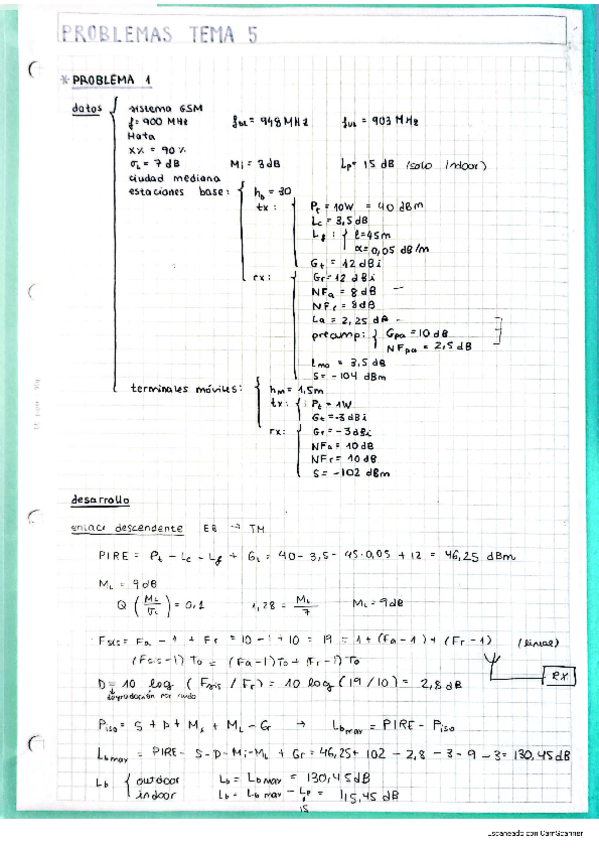 PROBLEMAS TEMA 5
* PROBLEMA 1
datos sistema GSM
f = 900 MHz f_DL = 948 MHz f_UL = 903 MHz
Hata
XX% = 90%
σ_L = 7 dB M_i = 3 dB L_p = 15 dB (solo indoor)
ciudad mediana
estaciones base: h_b = 30
tx: P_t = 10W = 40 dBm
L_c = 3,5 dB
L_f : l = 45m
α = 0,05 dB/m
G_t = 12 dBi
rx: Gr = 12 dBi
NFa = 8 dB
NFr = 8 dB
La = 2,25 dB
preamp: G_pa = 10 dB
NF_pa = 2,5 dB
L_mo = 3,5 dB
S = -104 dBm
terminales móviles: h_m = 1,5m
tx: P_t = 1W
G_t = -3 dBi
rx: Gr = -3 dBi
NFa = 10 dB
NFr = 10 dB
S = -102 dBm
desarrollo
enlace descendente EB → TM
PIRE = P_t - L_c - L_f + G_t = 40 - 3,5 - 45·0,05 + 12 = 46,25 dBm
M_L = 9 dB
Q (M_L/σ_L) = 0,1 1,28 = M_L/7 M_L = 9 dB
F_sis = Fa - 1 + Fr = 10 - 1 + 10 = 19 = 1 + (Fa - 1) + (Fr - 1) (lineal)
(F_sis - 1) To = (Fa - 1) To + (Fr - 1) To
D = 10 log (F_sis / Fr) = 10 log (19/10) = 2,8 dB
degradación por ruido
RX
P_iso = S + D + M_i + M_L - Gr → L_bmax = PIRE - P_iso
L_bmax = PIRE - S - D - M_i - M_L + Gr = 46,25 + 102 - 2,8 - 3 - 9 - 3 = 130,45 dB
L_b outdoor L_b = L_bmax = 130,45 dB
indoor L_b = L_bmax - L_p = 115,45 dB
15
Escaneado con CamScanner